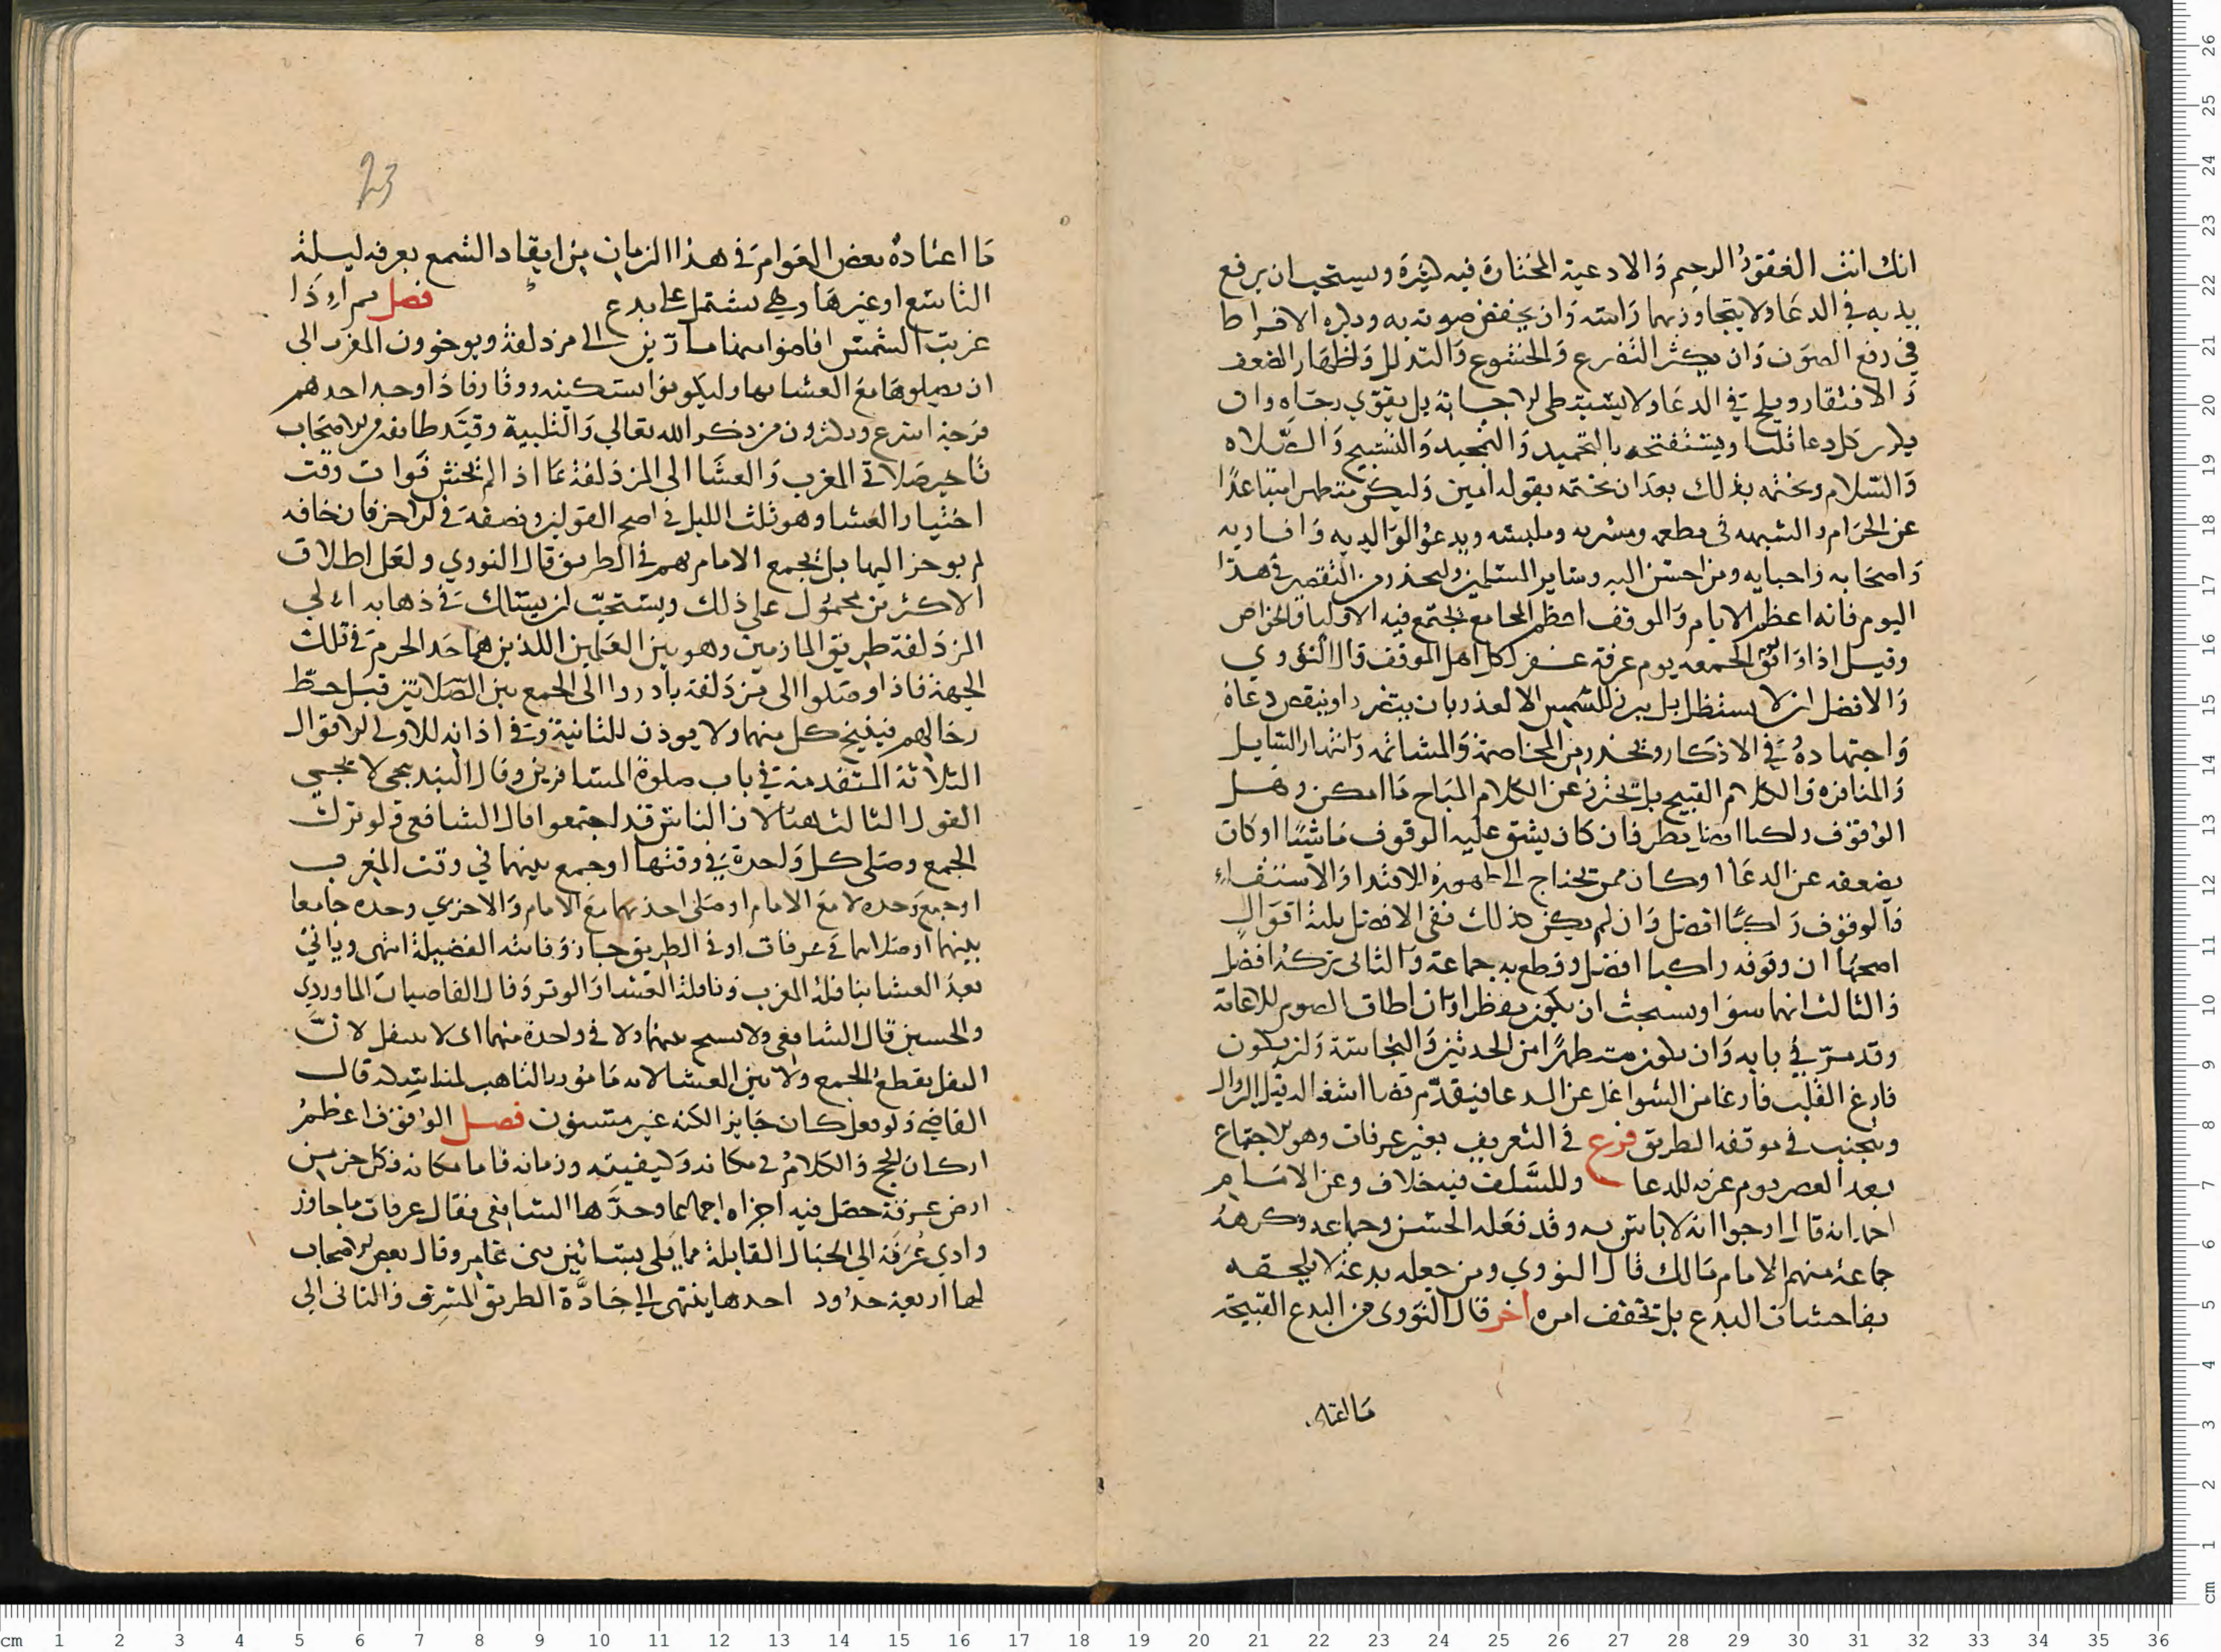 انك انت الغفور الرحيم والادعية المختارة فيه كثيرة ويستحب ان يرفع
يديه في الدعا ولا يتجاوز بهما راسه وان يخفض صوته به ويكره الافراط
في رفع الصوت وان يكثر التضرع والخشوع والتذلل واظهار الضعف
والافتقار ويلح في الدعا ولا يستبطي الاجابة بل يقوي رجاه وان
يكرر كل دعا ثلثا ويستفتحه بالتحميد والتمجيد والتسبيح والصلاه
والسلام ويختمه بذلك بعد ان يختمه بقوله امين وليكن متطهرا متباعدا
عن الحرام والشبهه في مطعمه ومشربه وملبسه ويدعو لوالديه واقاربه
واصحابه واحبابه ومن احسن اليه وساير المسلمين وليحذر من التقصير في هذا
اليوم فانه اعظم الايام والموقف اعظم المجامع يجتمع فيه الاوليا والخواص
وقيل اذا وافق الجمعه يوم عرفة غفر لكل اهل الموقف قال النووي
والافضل ان لا يستظل بل يبرز للشمس الا لعذر بان يتضرر او ينقص دعاه
واجتهاده في الاذكار ويحذر من المخاصمة والمشاتمه وانتهار السايل
والمنافره والكلام القبيح بل يحترز عن الكلام المباح ما امكن وهل
الوقوف راكبا افضل ينظر فان كان يشق عليه الوقوف ماشيا او كان
يضعفه عن الدعا او كان ممن يحتاج الى ظهوره للاقتدا والاستفتاء
فالوقوف راكبا افضل وان لم يكن كذلك ففي الافضل ثلثة اقوال
اصحها ان وقوفه راكبا افضل وقطع به جماعة والثاني تركه افضل
والثالث انهما سوا ويستحب ان يكون مفطرا وان اطاق الصوم للاعانة
وقد مر في بابه وان يكون متطهرا من الحدثين والنجاسة وان يكون
فارغ القلب فارغا من الشواغل عن الدعا فيقدم قضا اشغاله قبل الزوال
ويتجنب في موقفه الطريق فرع في التعريف بغير عرفات وهو الاجتماع
بعد العصر يوم عرفه للدعا وللسلف فيه خلاف وعن الامام
احمد انه قال ارجوا انه لا باس به وقد فعله الحسن وجماعه وكرهه
جماعة منهم الامام مالك قال النووي ومن جعله بدعة لا يلحقه
بفاحشات البدع بل يخفف امره اخر قال النووي من البدع القبيحة
ما اعتاده
23
ما اعتاده بعض العوام في هذا الزمان من ايقاد الشمع بعرفه ليلة
التاسع او غيرها وهي تشتمل على بدع فصل ثم اذا
غربت الشمس افاضوا منها مارين الى مزدلفة ويوخرون المغرب الى
ان يصلوها مع العشا بها وليكونوا بسكينه ووقار فاذا وجد احدهم
فرجة اسرع ويكثرون من ذكر الله تعالي والتلبية وقيد طايفه من الاصحاب
تاخير صلاتي المغرب والعشا الى المزدلفة بما اذا لم يخش فوات وقت
اختيار العشا وهو ثلث الليل في اصح القولين ونصفه في الاخر فان خافه
لم يوخر اليها بل يجمع الامام بهم في الطريق قال النووي ولعل اطلاق
الاكثرين محمول على ذلك ويستحب ان يسلك في ذهابه الى
المزدلفة طريق المازمين وهو بين العلمين اللذين هما حد الحرم في تلك
الجهة فاذا وصلوا الى مزدلفة بادروا الى الجمع بين الصلاتين قبل حط
رحالهم فيقيم لكل منهما ولا يوذن للثانية وفي اذانه للاولى الاقوال
الثلاثة المتقدمة في باب صلوة المسافرين وقال البندنيجي لا يجيي
القول الثالث هنا لان الناس قد اجتمعوا قال الشافعي ولو ترك
الجمع وصلى كل واحدة في وقتها او جمع بينهما في وقت المغرب
او جمع وحده لا مع الامام او صلى احديهما مع الامام والاخري وحده جامعا
بينهما او صلاهما في عرفات او في الطريق جاز وفاتته الفضيلة انتهى وياتي
بعد العشا بنافلة المغرب ونافلة العشا والوتر وقال القاضيان الماوردي
والحسين قال الشافعي ولا يسبح بينهما ولا في واحدة منهما اى لا يتنفل لان
النفل يقطع الجمع ولا بين العشا لانه مامور بالتاهب لمناسكه قال
القاضي ولو فعل كان جايزا لكنه غير مسنون فصل الوقوف اعظم
اركان الحج والكلام في مكانه وكيفيته وزمانه فاما مكانه فكل جز من
ارض عرفة حصل فيه اجزاه اجماعا وحدها الشافعي فقال عرفات ما جاوز
وادي عرنة الى الجبال القابلة مما يلي بساتين بني عامر وقال بعض الاصحاب
لها اربعة حدود احدها ينتهى الى جادة الطريق المشرق والثاني الى